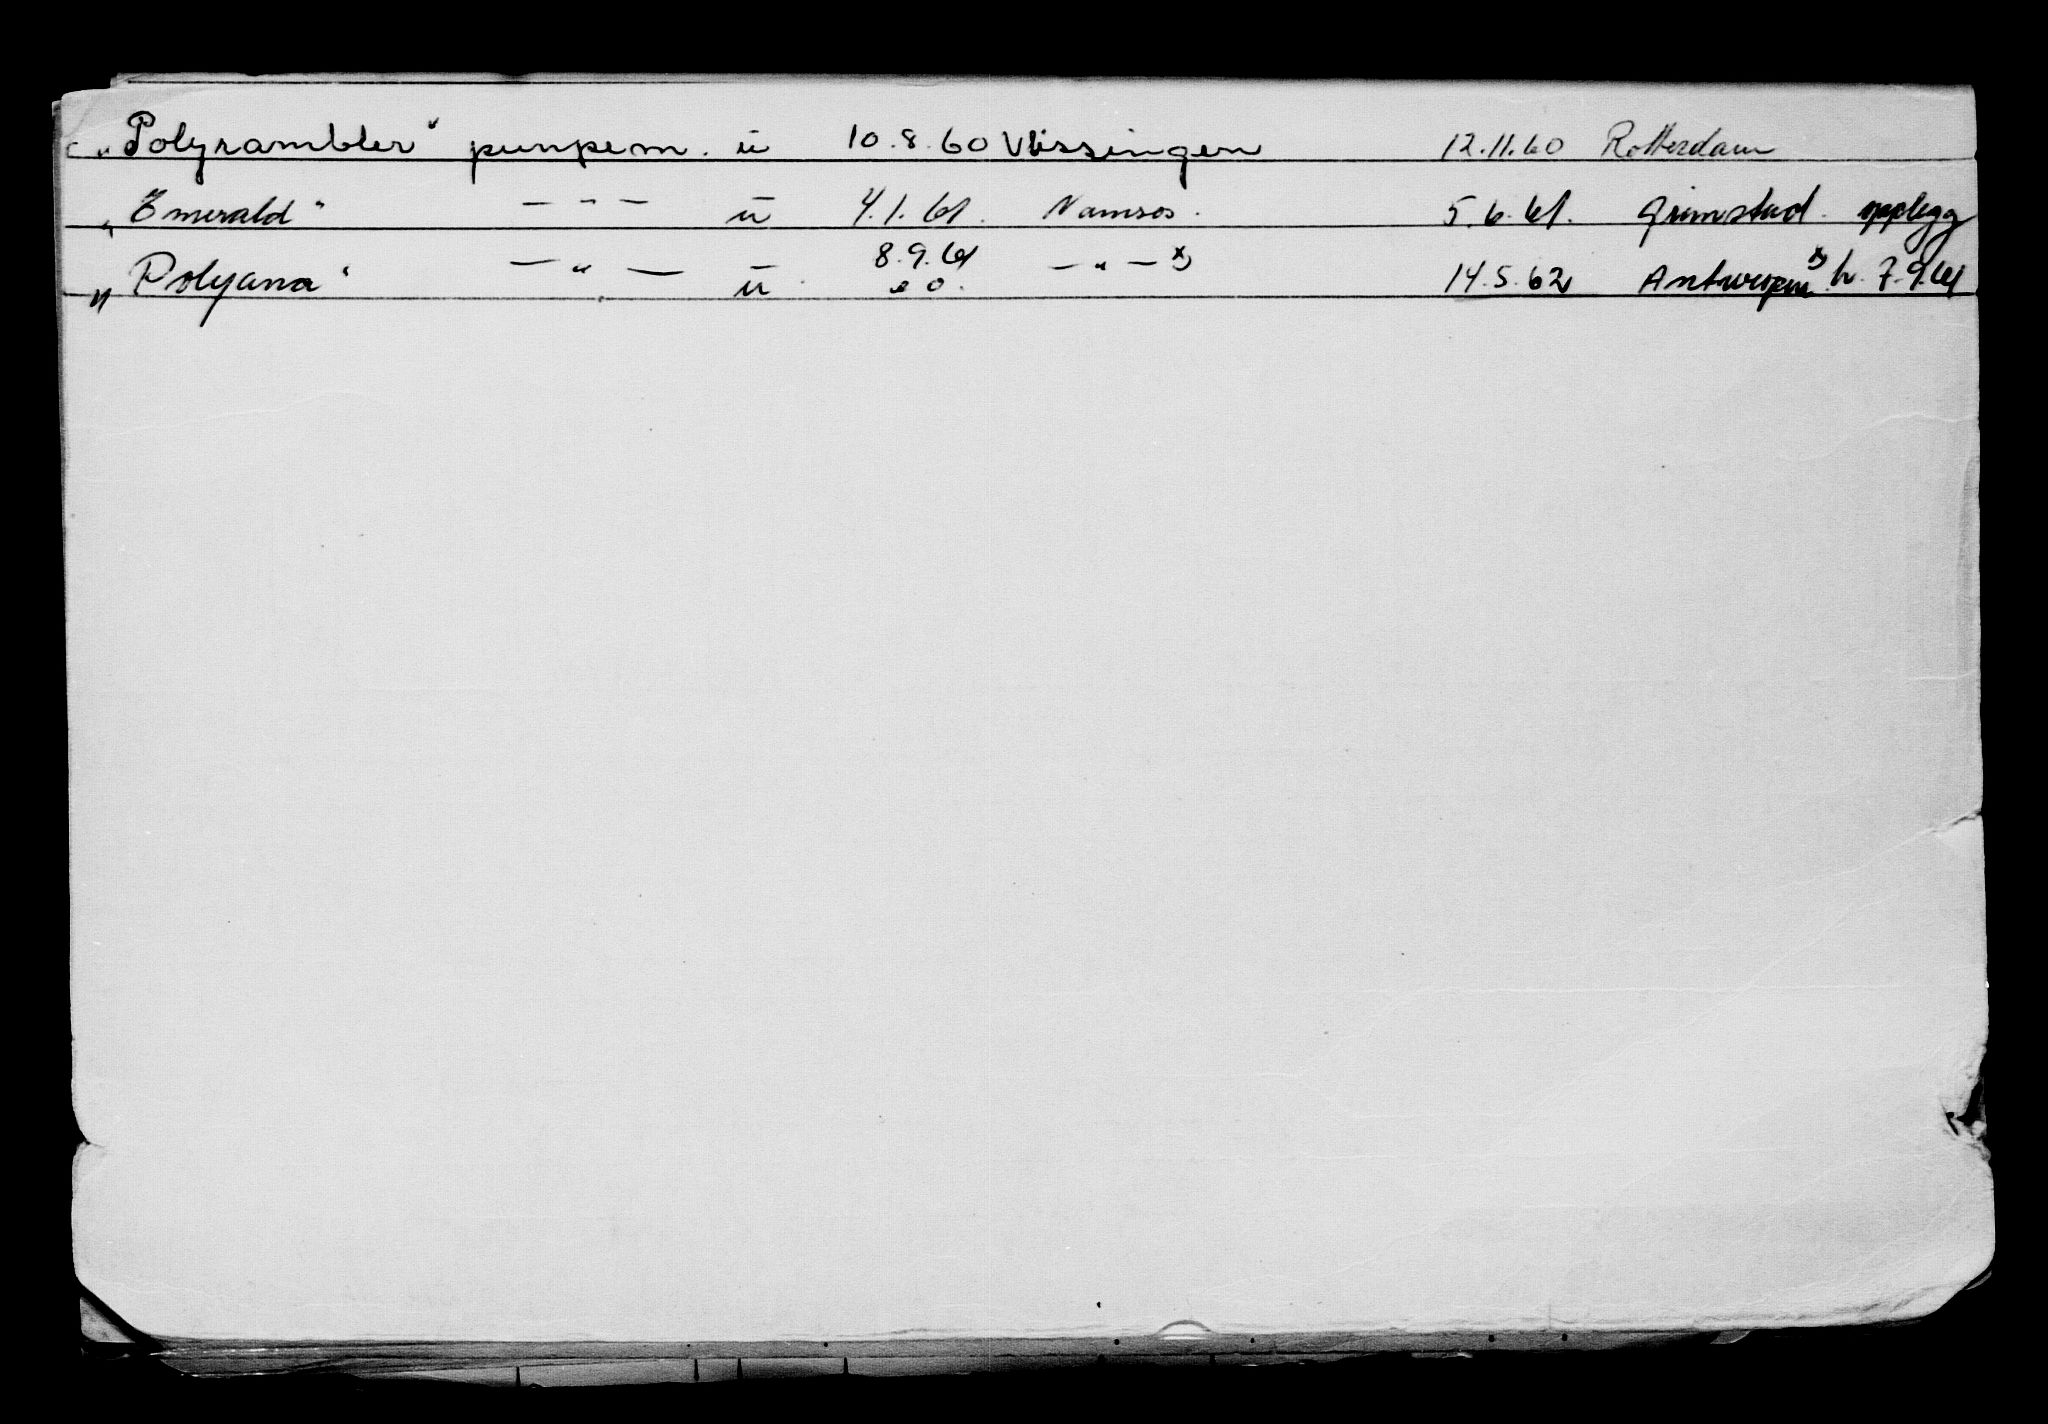 „Polyrambler" punpem. ü 10.8.60 Vlissingen 12.11.60 Rotterdam
„Emerald" — " — ü 4.1.61. Namsos. 5.6.61. Grimstad. opplegg
„Polyana" — " — ü 8.9.61 — " — x) 14.5.62 Antwerpen x) h. 7.9.61